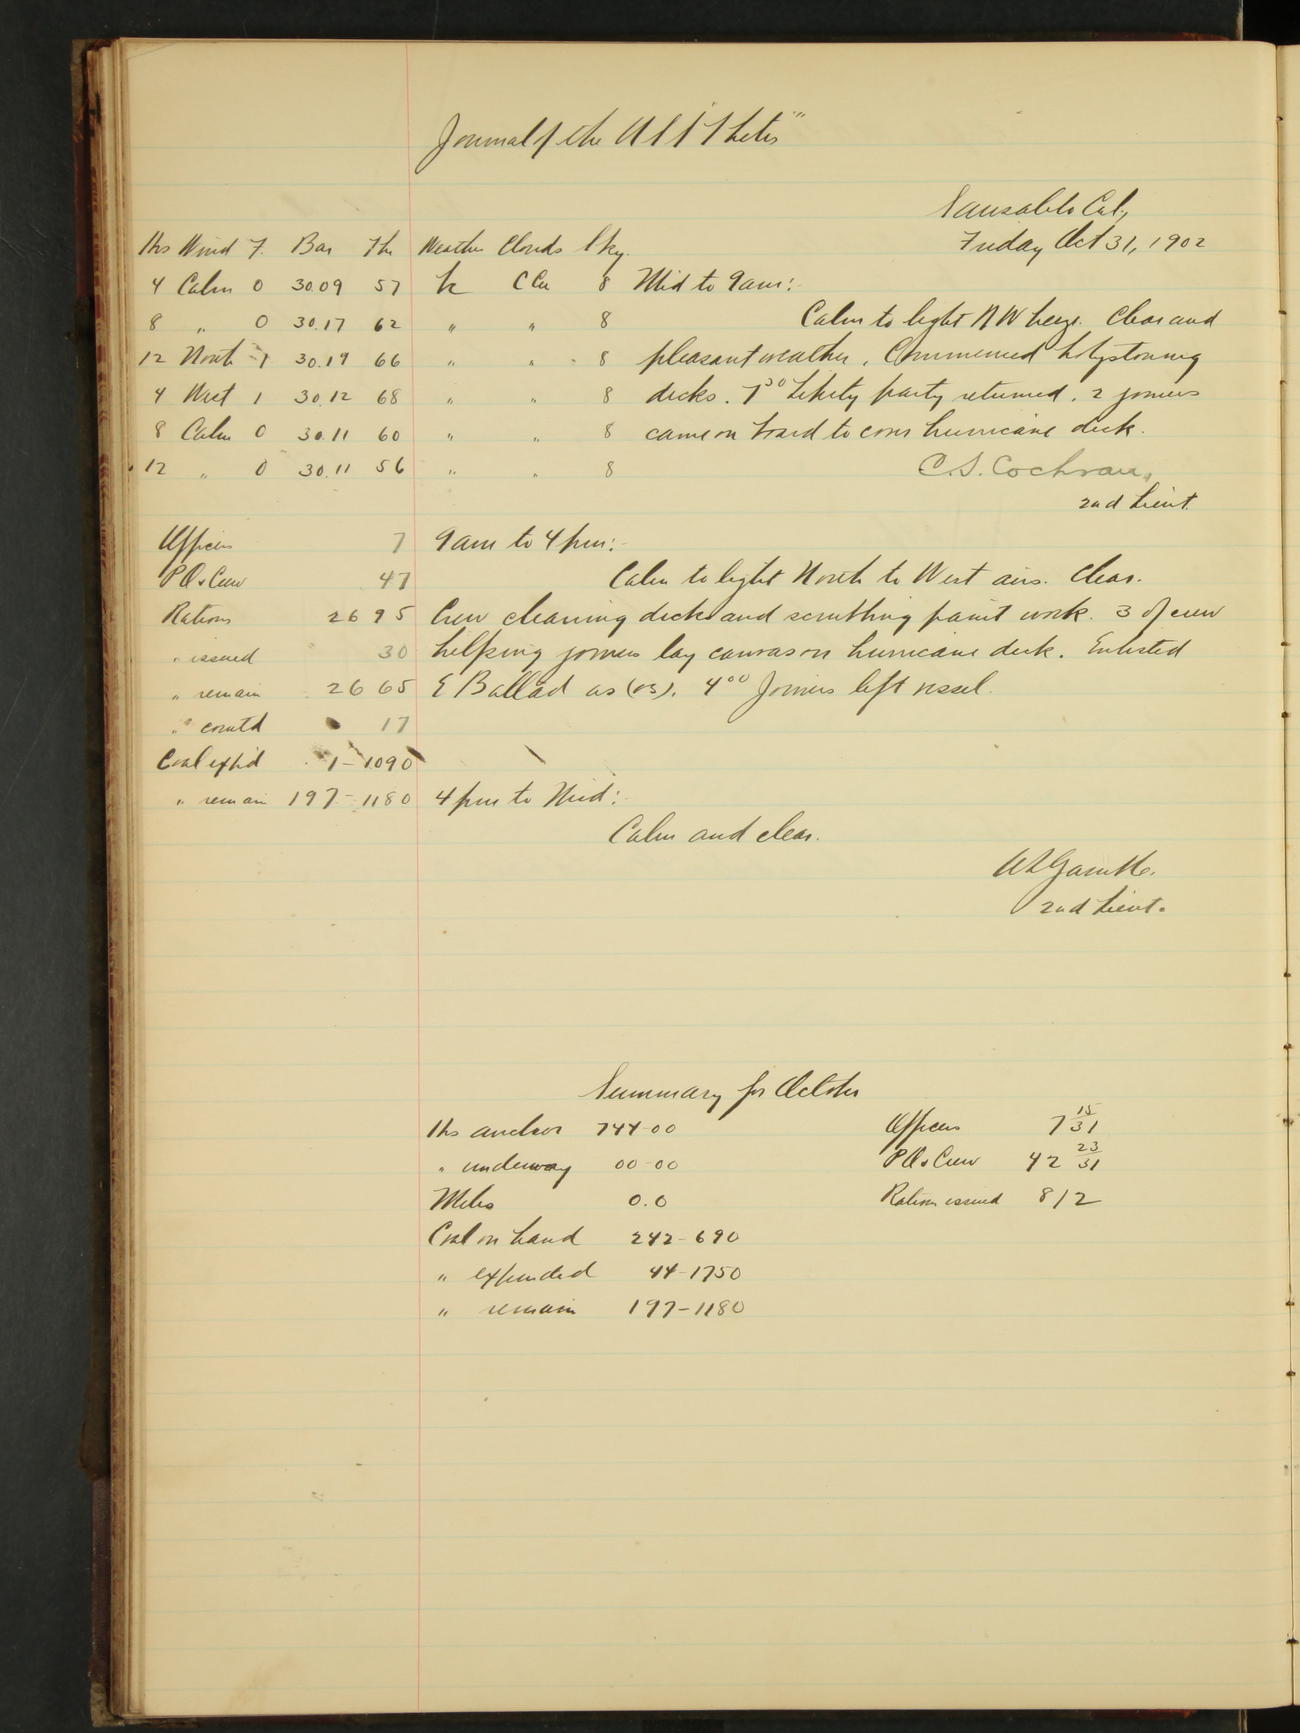 Journal of the USS "Thetis"
Sausalito Cal,
Friday Oct 31, 1902
Hrs Wind F. Bar Thr Weather Clouds Sky.
4 Calm 0 30.09 57 b C Cu 8 Mid to 9am:-
8 " 0 30.17 62 " " 8 Calm to light NW breeze. Clear and
12 North 1 30.19 66 " " 8 pleasant weather. Commenced holystoning
4 West 1 30.12 68 " " 8 decks. 7³⁰ Liberty party returned. 2 joiners
8 Calm 0 30.11 60 " " 8 came on board to cover hurricane deck.
12 " 0 30.11 56 " " 8 C.S. Cochran,
2nd Lieut.
Officers 7 9am to 4pm:-
P O & Crew 47 Calm to light North to West airs. Clear.
Rations 2695 Crew cleaning decks and scrubbing paint work. 3 of crew
" issued 30 helping joiners lay canvas on hurricane deck. Enlisted
" remain 2665 E Ballad as (os). 4⁰⁰ Joiners left vessel.
" comtd 17
Coal exp'd 1-1090
" remain 197-1180 4pm to Mid:-
Calm and clear.
2nd Lieut.
Summary for October
Hrs anchor 744-00 Officers 7 15/31
" underway 00-00 P O & Crew 42 23/31
Miles 0.0 Rations issued 812
Coal on hand 242-690
" expended 44-1750
" remain 197-1180